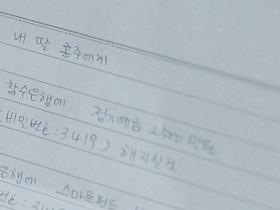 내 딸 홍주에게
참수은행에 정기예금 2500만원
비밀번호:3419) 해지할것
은행에 스마트펀드
번호: